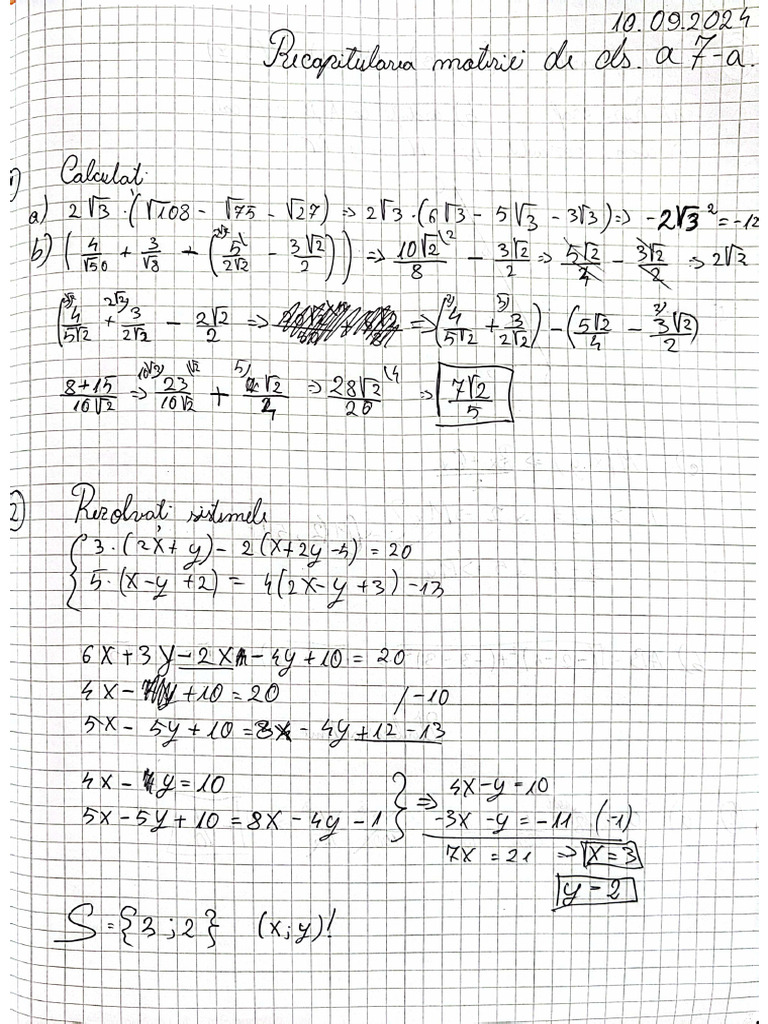 10.09.2024
Recapitularea materiei de cls. a 7-a.
1) Calculati
a) 2√3 · (√108 - √75 - √27) => 2√3 · (6√3 - 5√3 - 3√3) => -2√3² = -12
b) (4/√50 + 3/√8 - (5/2√2 - 3√2/2)) => 10√2/8 - 3√2/2 => 5√2/4 - 3√2/2 => 2√2
(4/5√2 + 3/2√2 - 2√2/2 => => (4/5√2 + 3/2√2) - (5√2/4 - 3√2/2)
8+15/10√2 => 23/10√2 + √2/4 => 28√2/20 => 7√2/5
2) Rezolvați sistemele
{ 3·(2x+y) - 2(x+2y-5) = 20
5·(x-y+2) = 4(2x-y+3) -13
6x+3y-2x-4y+10 = 20
4x - y+10 = 20 /-10
5x - 5y+10 = 8x - 4y+12-13
4x - y = 10 } => 4x-y=10
5x-5y+10 = 8x-4y-1 -3x-y=-11 (-1)
7x = 21 => x=3
y=2
S={3;2} (x;y)!